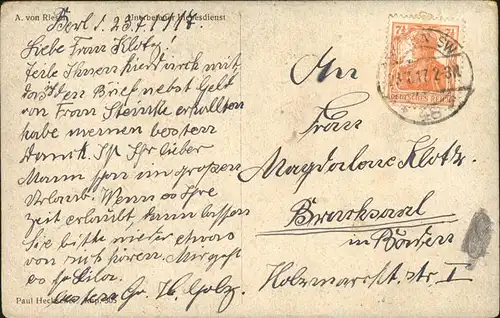 A. von Riesen Unterbrochener Liebesdienst
Berl. d. 23.7.1917.
Liebe Frau Klotz.
Teile Ihnen hierdurch mit
das den Brief nebst Geld
von Frau Steinke erhalten
habe meinen besten
Dank. Ist Ihr lieber
Mann schon im großen
Urlaub. Wenn es Ihre
Zeit erlaubt, dann lassen
Sie bitte wieder etwas
von sich hören. Mir geht
es
Gr. H. Golz.
Paul Heckscher, Imp. 303
7½ 7½
DEUTSCHES REICH
SW
.17.2-3N.
An
Frau
Magdalone Klotz.
Bruchsaal
in Baden
Holzmarktstr. I